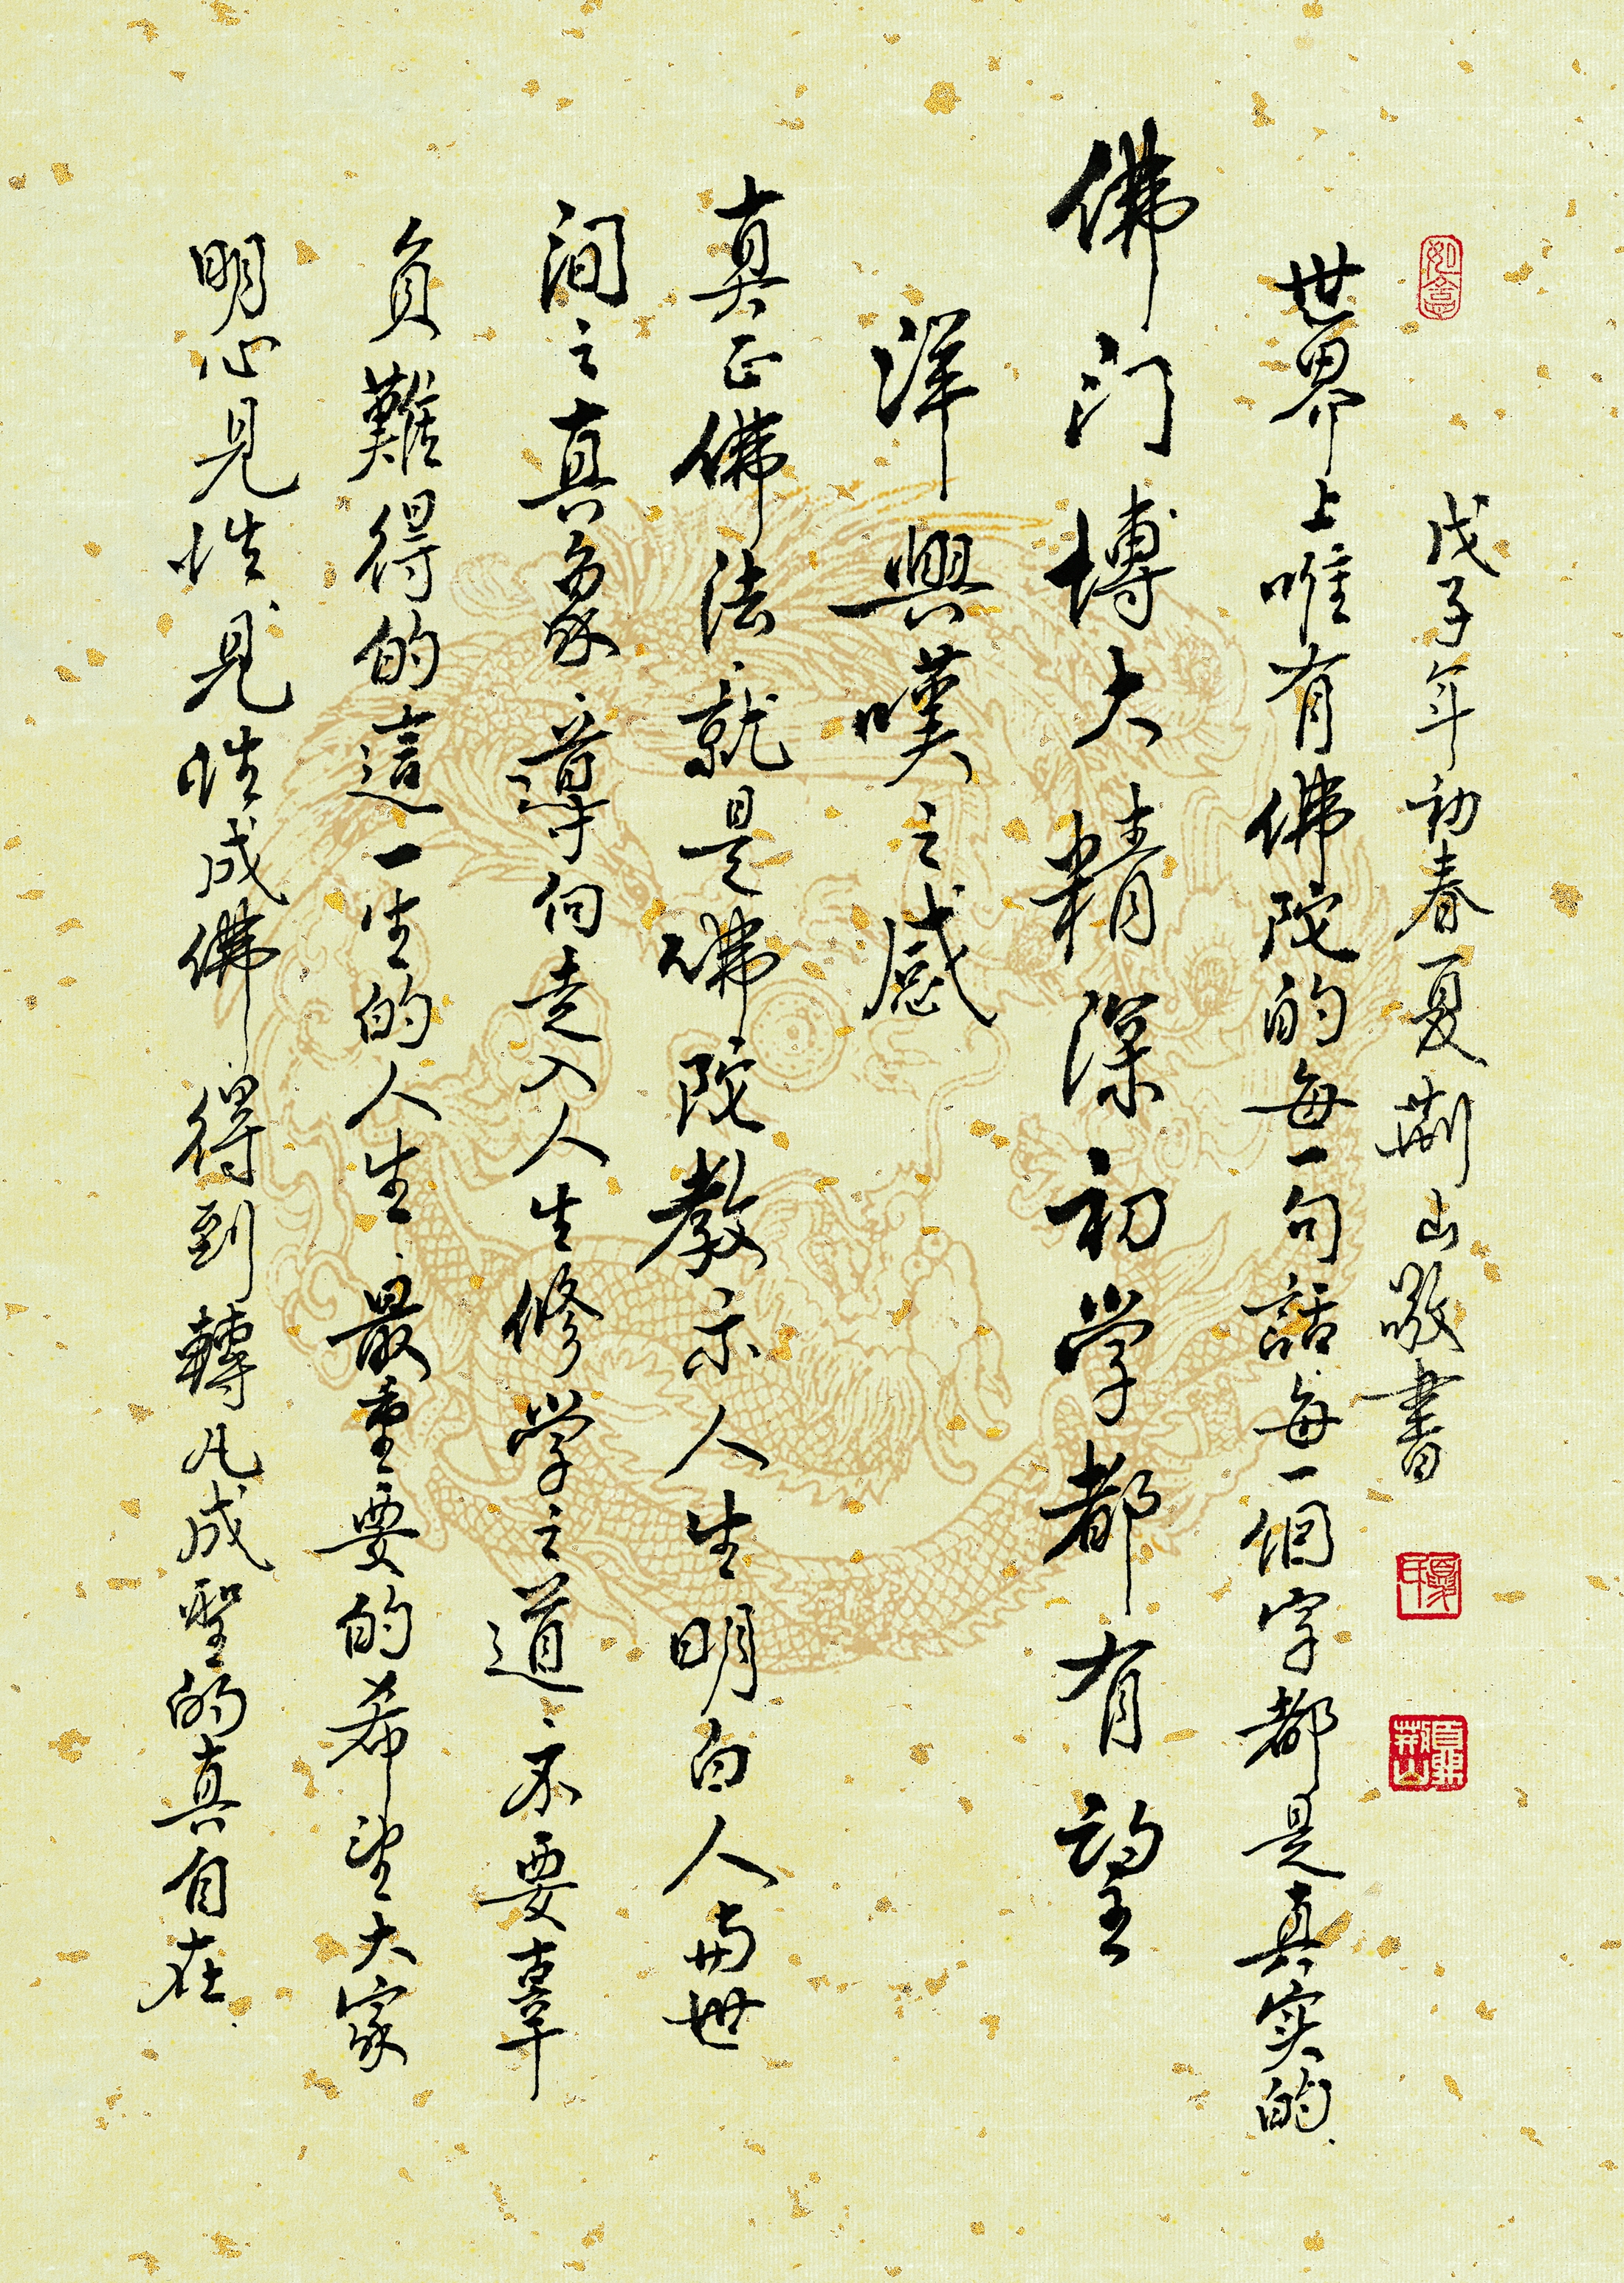 戊子年初春夏荆山敬書
世界上唯有佛陀的每一句話每一個字都是真实的
佛门博大精深初学都有望
洋興嘆之感
真正佛法就是佛陀教示人生明白人与世
间之真象導向走入人生修学之道不要辜
負難得的這一生的人生最重要的希望大家
明心見性見性成佛得到轉凡成聖的真自在
如意
夏荆山